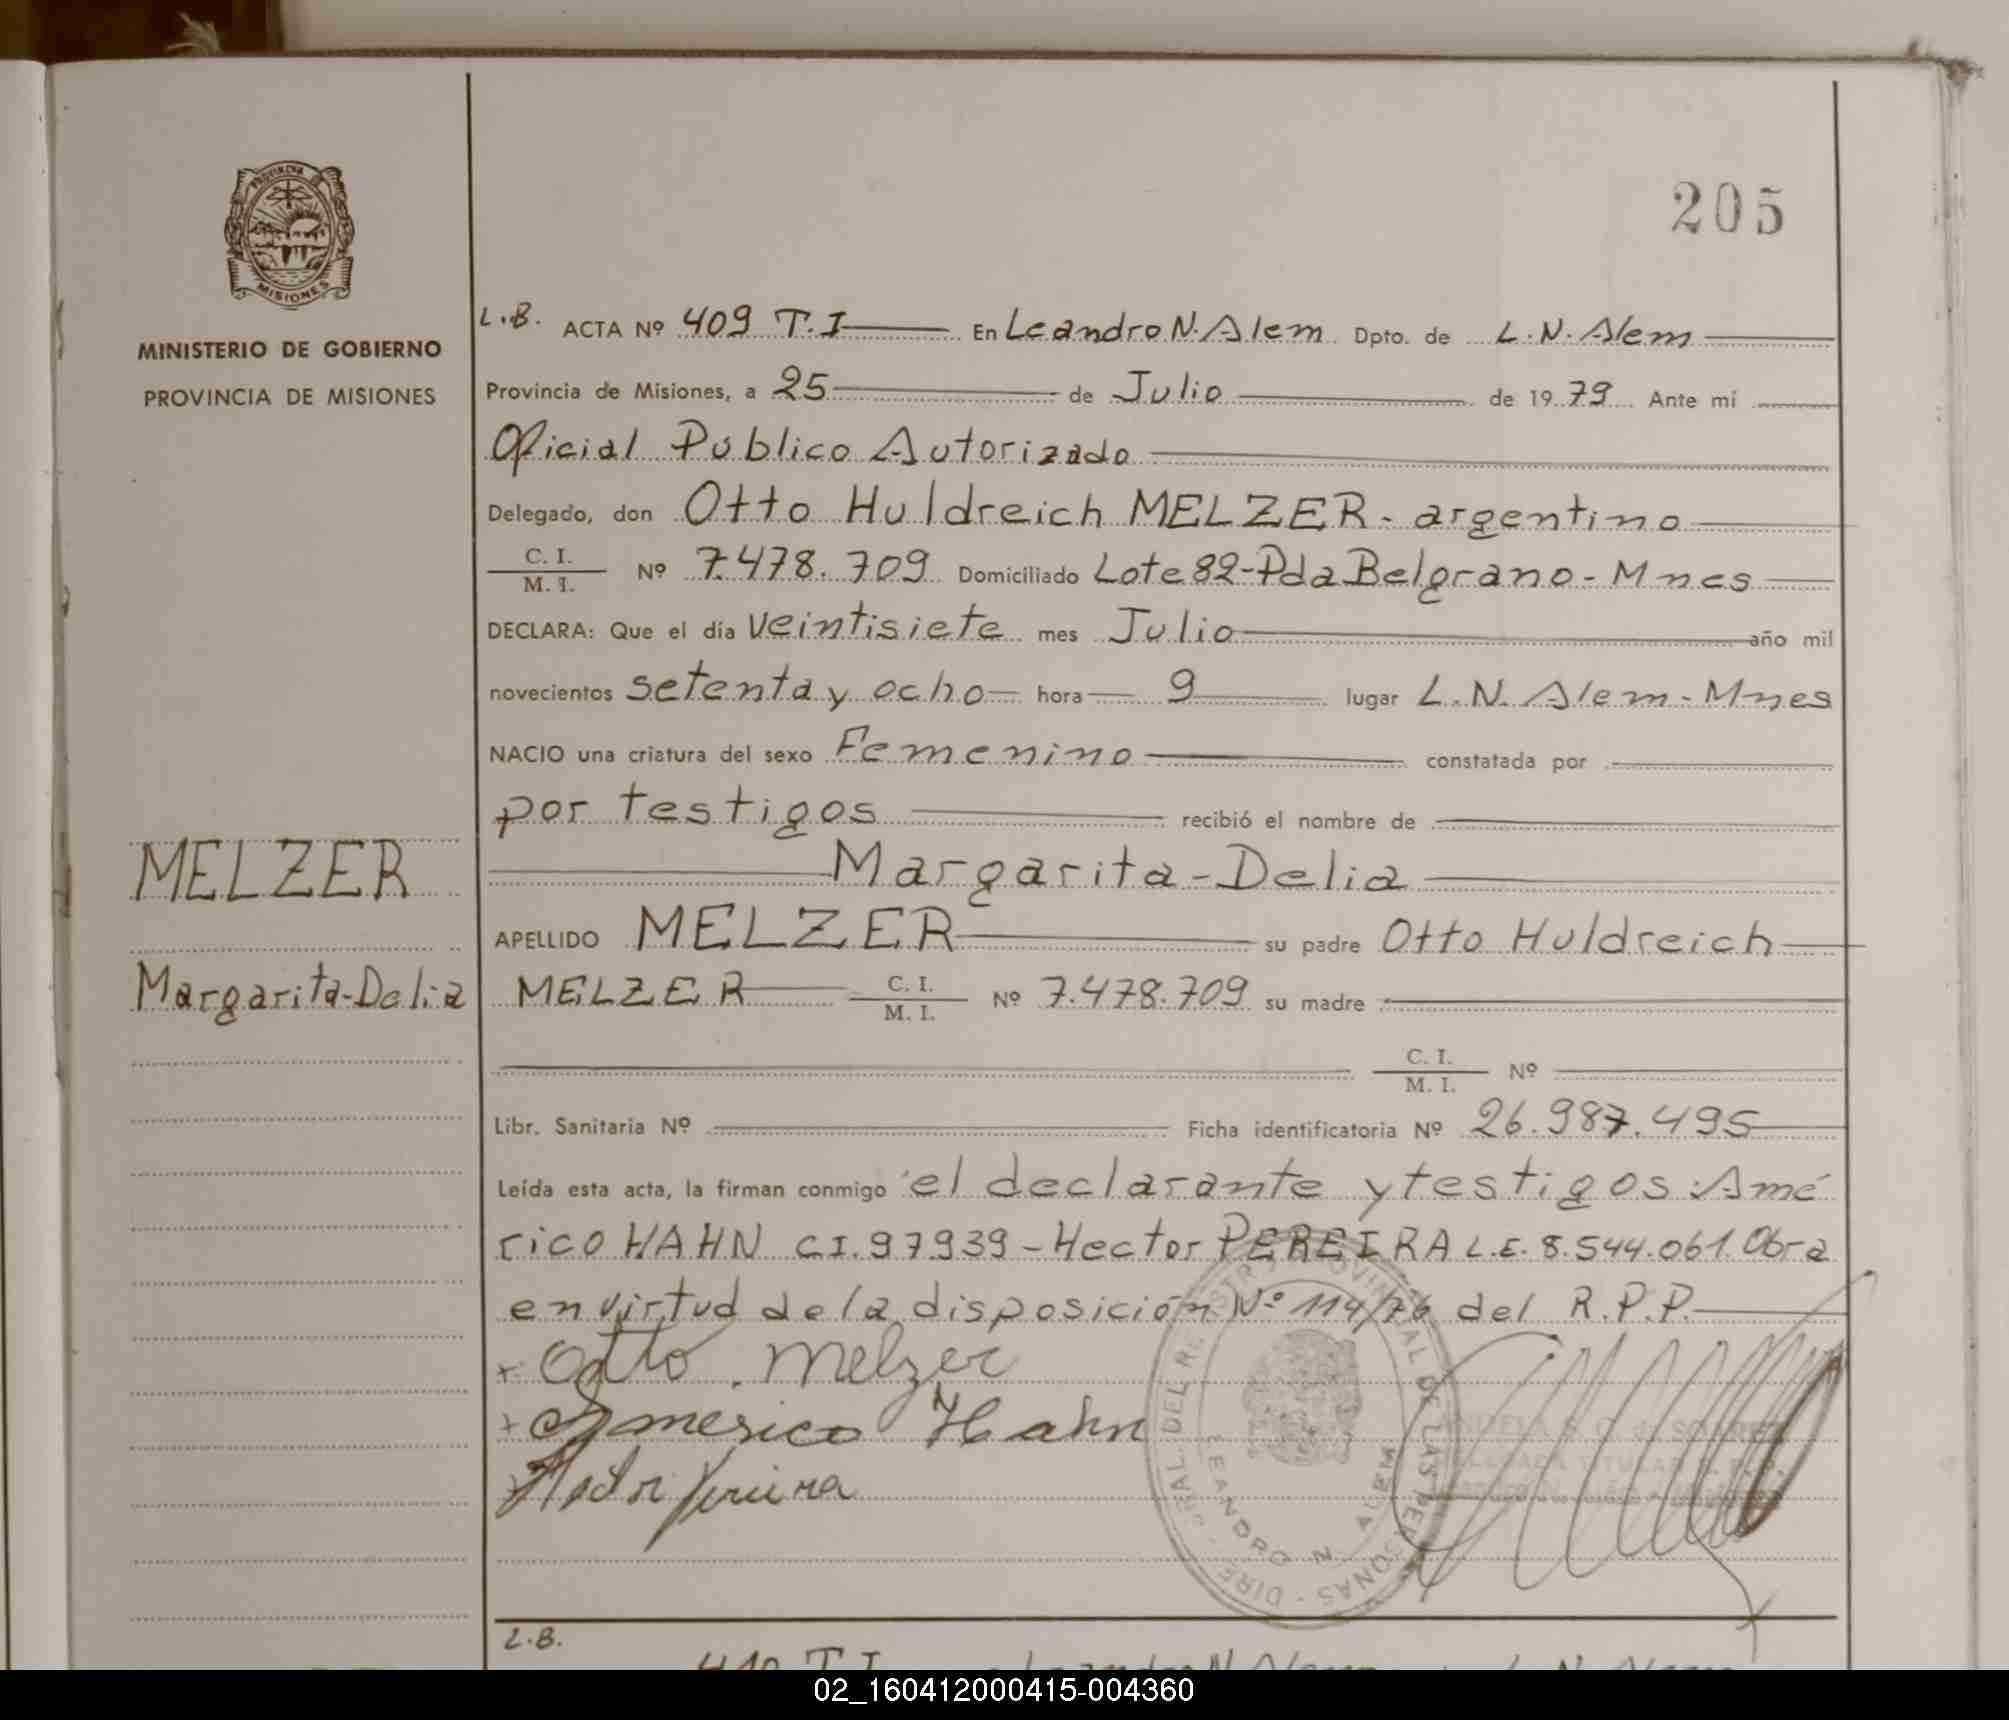 205
PROVINCIA
MISIONES
MINISTERIO DE GOBIERNO
PROVINCIA DE MISIONES
L.B. ACTA Nº 409 T.I En Leandro N. Alem Dpto. de L.N. Alem
Provincia de Misiones, a 25 de Julio de 1979 Ante mí
Oficial Público Autorizado
Delegado, don Otto Huldreich MELZER - argentino
C. I. / M. I. Nº 7.478.709 Domiciliado Lote 82-Pda Belgrano - Mnes
DECLARA: Que el día veintisiete mes Julio año mil
novecientos setenta y ocho hora 9 lugar L.N. Alem - Mnes
NACIO una criatura del sexo Femenino constatada por
por testigos recibió el nombre de
Margarita-Delia
APELLIDO MELZER su padre Otto Huldreich
MELZER C. I. / M. I. Nº 7.478.709 su madre
C. I. / M. I. Nº
Libr. Sanitaria Nº Ficha identificatoria Nº 26.987.495
Leída esta acta, la firman conmigo el declarante y testigos: Amé
rico HAHN C.I. 97939 - Hector PEREIRA L.E. 8.544.061. Obra
en virtud de la disposición Nº 114/76 del R.P.P.
+ Otto. Melzer
+ Americo Hahn
Pereira
MELZER
Margarita-Delia
PROVINCIAL DE LAS PERSONAS
LEANDRO N. ALEM
L.B.
410 T.I Leandro N. Alem L.N. Alem
02_160412000415-004360